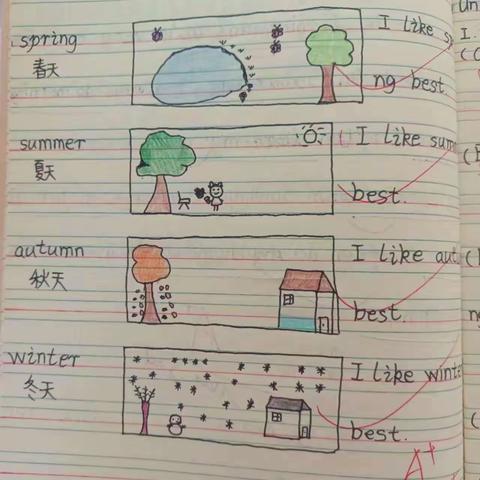 spring
春天
I like
ng best.
summer
夏天
I like sum
best.
autumn
秋天
I like aut
best.
winter
冬天
I like winte
best.
A+
un
I.